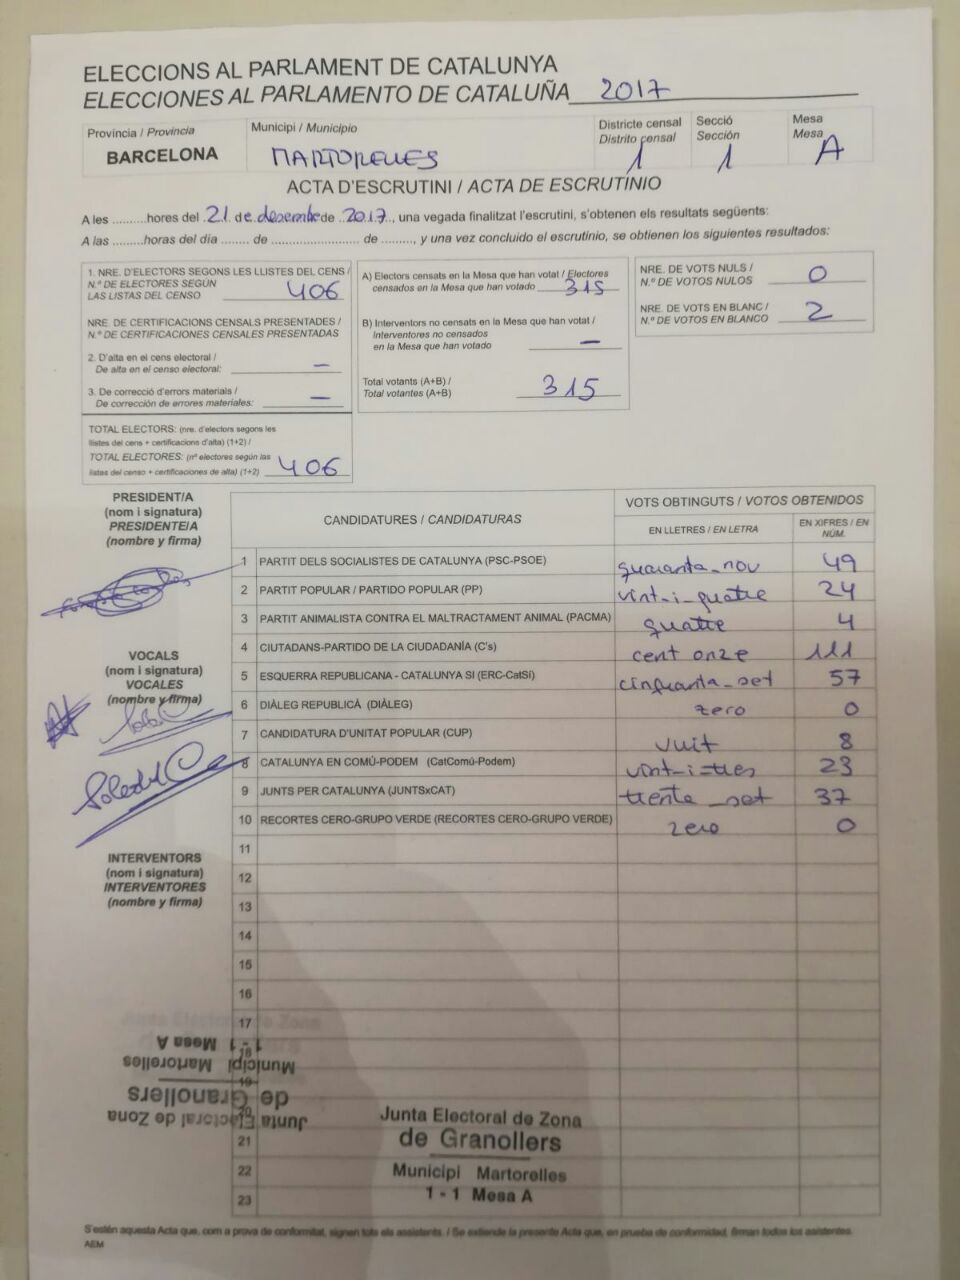 ELECCIONS AL PARLAMENT DE CATALUNYA
ELECCIONES AL PARLAMENTO DE CATALUÑA 2017
Província / Provincia
BARCELONA
Municipi / Municipio
MARTORELLES
Districte censal
Distrito censal
1
Secció
Sección
1
Mesa
Mesa
A
ACTA D'ESCRUTINI / ACTA DE ESCRUTINIO
A les ..........hores del 21 de desembre de 2017, una vegada finalitzat l'escrutini, s'obtenen els resultats següents:
A las .........horas del día ........ de ........................ de ........., y una vez concluido el escrutinio, se obtienen los siguientes resultados:
1. NRE. D'ELECTORS SEGONS LES LLISTES DEL CENS /
N.º DE ELECTORES SEGÚN
LAS LISTAS DEL CENSO 406
NRE. DE CERTIFICACIONS CENSALS PRESENTADES /
N.º DE CERTIFICACIONES CENSALES PRESENTADAS
2. D'alta en el cens electoral /
De alta en el censo electoral: –
3. De correcció d'errors materials /
De corrección de errores materiales: –
TOTAL ELECTORS: (nre. d'electors segons les
llistes del cens + certificacions d'alta) (1+2) /
TOTAL ELECTORES: (nº electores según las
listas del censo + certificaciones de alta) (1+2) 406
A) Electors censats en la Mesa que han votat / Electores
censados en la Mesa que han votado 315
B) Interventors no censats en la Mesa que han votat /
Interventores no censados
en la Mesa que han votado –
Total votants (A+B) /
Total votantes (A+B) 315
NRE. DE VOTS NULS /
N.º DE VOTOS NULOS 0
NRE. DE VOTS EN BLANC /
N.º DE VOTOS EN BLANCO 2
PRESIDENT/A
(nom i signatura)
PRESIDENTE/A
(nombre y firma)
VOCALS
(nom i signatura)
VOCALES
(nombre y firma)
INTERVENTORS
(nom i signatura)
INTERVENTORES
(nombre y firma)
CANDIDATURES / CANDIDATURAS
VOTS OBTINGUTS / VOTOS OBTENIDOS
EN LLETRES / EN LETRA
EN XIFRES / EN
NÚM.
1 PARTIT DELS SOCIALISTES DE CATALUNYA (PSC-PSOE) quaranta-nou 49
2 PARTIT POPULAR / PARTIDO POPULAR (PP) vint-i-quatre 24
3 PARTIT ANIMALISTA CONTRA EL MALTRACTAMENT ANIMAL (PACMA) quatre 4
4 CIUTADANS-PARTIDO DE LA CIUDADANÍA (C's) cent onze 111
5 ESQUERRA REPUBLICANA - CATALUNYA SI (ERC-CatSí) cinquanta-set 57
6 DIÀLEG REPUBLICÀ (DIÀLEG) zero 0
7 CANDIDATURA D'UNITAT POPULAR (CUP) vuit 8
8 CATALUNYA EN COMÚ-PODEM (CatComú-Podem) vint-i-tres 23
9 JUNTS PER CATALUNYA (JUNTSxCAT) trenta-set 37
10 RECORTES CERO-GRUPO VERDE (RECORTES CERO-GRUPO VERDE) zero 0
11
12
13
14
15
16
17
18
19
20
21
22
23
Junta Electoral de Zona
de Granollers
Municipi Martorelles
1 - 1 Mesa A
Junta Electoral de Zona
de Granollers
Municipi Martorelles
1 - 1 Mesa A
S'estén aquesta Acta que, com a prova de conformitat, signen tots els assistents. / Se extiende la presente Acta que, en prueba de conformidad, firman todos los asistentes.
AEM